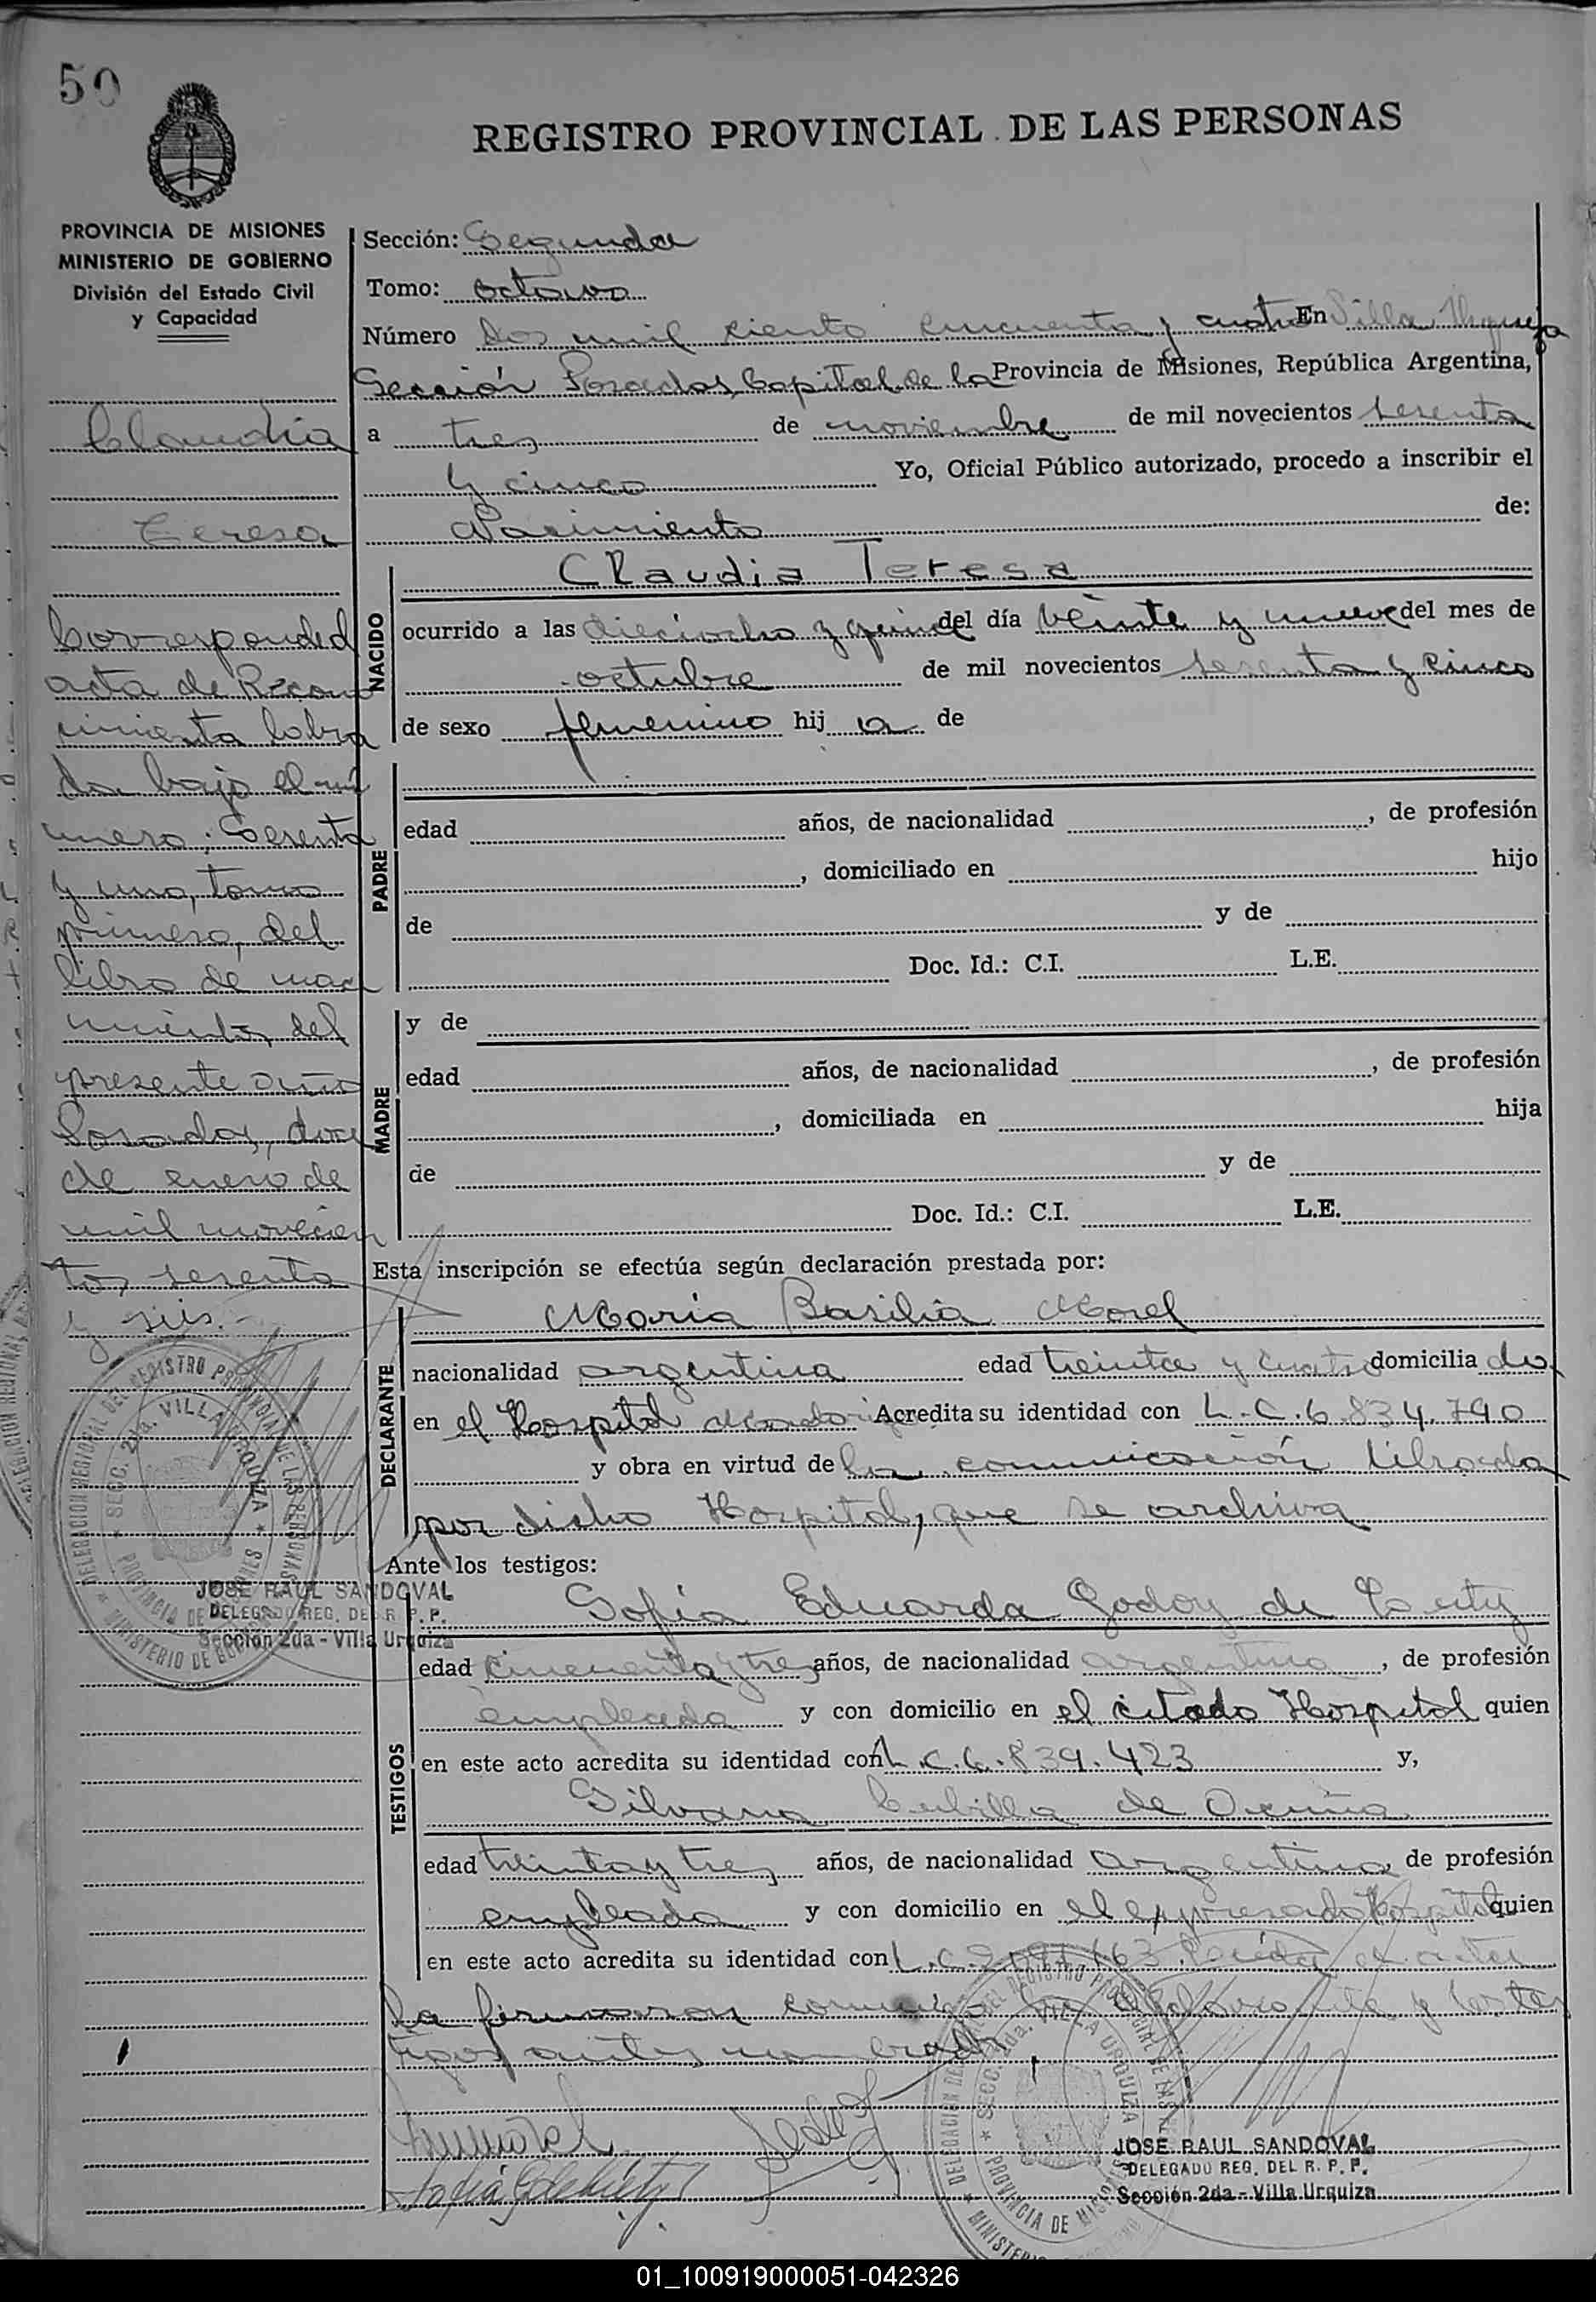 50
REGISTRO PROVINCIAL DE LAS PERSONAS
PROVINCIA DE MISIONES
MINISTERIO DE GOBIERNO
División del Estado Civil
y Capacidad
Claudia
Teresa
Corresponded
acta de Recono
cimiento labra
da bajo el nú
mero: Sesenta
y uno, tomo
primero, del
libro de naci
mientos del
presente año
Posadas, doce
de enero de
mil novecien
tos sesenta
y seis.-
Sección: Segunda
Tomo: octavo
Número Dos mil ciento cincuenta y cuatro En Villa Urquiza
Sección Posadas, Capital de la Provincia de Misiones, República Argentina,
a tres de noviembre de mil novecientos sesenta
y cinco Yo, Oficial Público autorizado, procedo a inscribir el
Nacimiento de:
NACIDO
Claudia Teresa
ocurrido a las dieciocho y quince del día veinte y nueve del mes de
octubre de mil novecientos sesenta y cinco
de sexo femenino hij a de
PADRE
edad años, de nacionalidad , de profesión
, domiciliado en hijo
de y de
Doc. Id.: C.I. L.E.
MADRE
y de
edad años, de nacionalidad , de profesión
, domiciliada en hija
de y de
Doc. Id.: C.I. L.E.
Esta inscripción se efectúa según declaración prestada por:
DECLARANTE
María Basilia Morel
nacionalidad argentina edad treinta y cuatro domicilia da
en el Hospital Acredita su identidad con L.C.6.834.790
y obra en virtud de la comunicación librada
por dicho Hospital, que se archiva
Ante los testigos:
TESTIGOS
Sofía Eduarda Godoy de
edad cincuenta y tres años, de nacionalidad argentina, de profesión
empleada y con domicilio en el citado Hospital quien
en este acto acredita su identidad con L.C.6.839.423 y,
Silvana Cubilla de
edad treinta y tres años, de nacionalidad argentina de profesión
empleada y con domicilio en el expresado Hospital quien
en este acto acredita su identidad con L.C. Leída el acta
la firmaron conmigo la declarante y los tes
tigos antes nombrados
DELEGACION REGIONAL DEL REGISTRO PROVINCIAL DE LAS PERSONAS
SECC. 2da. VILLA URQUIZA
PROVINCIA DE MISIONES
MINISTERIO DE GOBIERNO
JOSE RAUL SANDOVAL
DELEGADO REG. DEL R. P. P.
Sección 2da - Villa Urquiza
JOSE RAUL SANDOVAL
DELEGADO REG. DEL R. P. P.
Sección 2da - Villa Urquiza
01_100919000051-042326